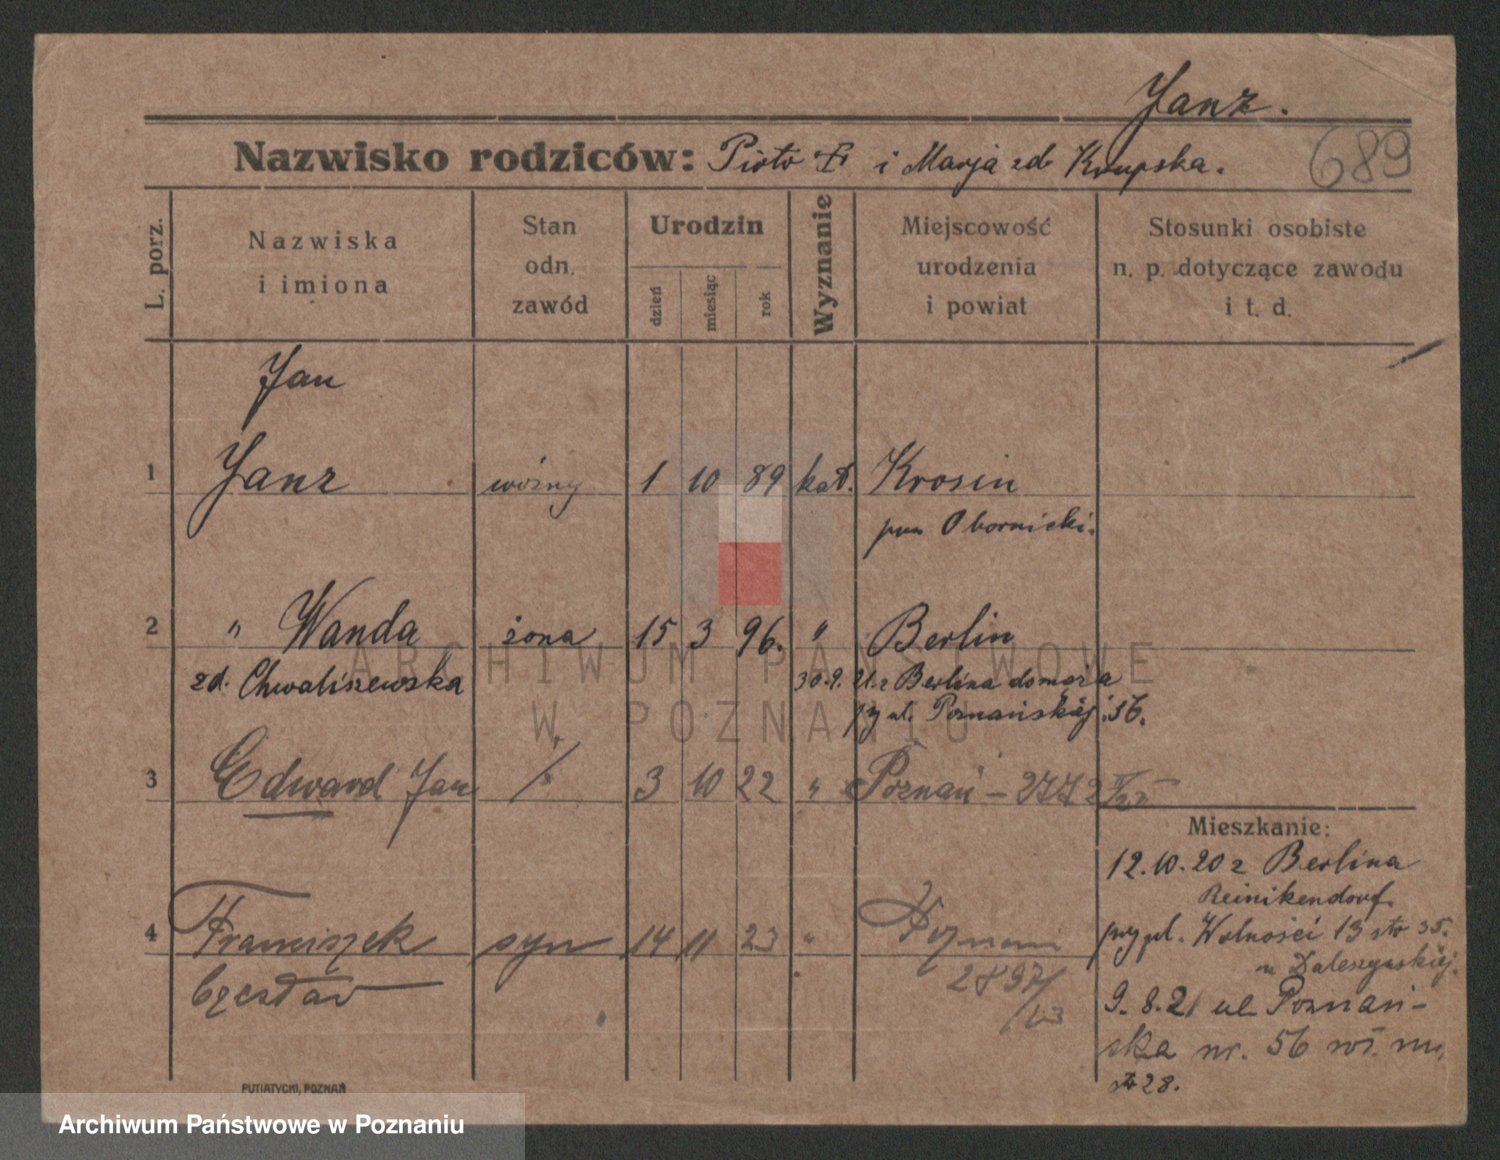 Janz.
Nazwisko rodziców: Piotr i Marja zd Krupska.
689
L. porz.
Nazwiska i imiona
Stan odn. zawód
Urodzin
dzień miesiąc rok
Wyznanie
Miejscowość urodzenia i powiat
Stosunki osobiste n. p. dotyczące zawodu i t. d.
Jan
1 Janz woźny 1 10 89 kat. Krosin
pow Obornicki.
2 " Wanda żona 15 3 96. " Berlin
zd. Chwaliszewska 30.9.21 z Berlina do męża
przy ul. Poznańskiej 56.
3 Edward Jan 3 10 22 " Poznań - 2772
Mieszkanie:
12.10.20 z Berlina
Reinikendorf
przy pl. Wolności 13 str 35.
u Daleszyńskiej.
4 Franciszek syn 14 11 23 " Poznań
Czesław 2897/23
9.8.21 ul Poznań-
ska nr. 56
str 28.
PUTIATYCKI, POZNAŃ
ARCHIWUM PAŃSTWOWE
W POZNANIU
Archiwum Państwowe w Poznaniu